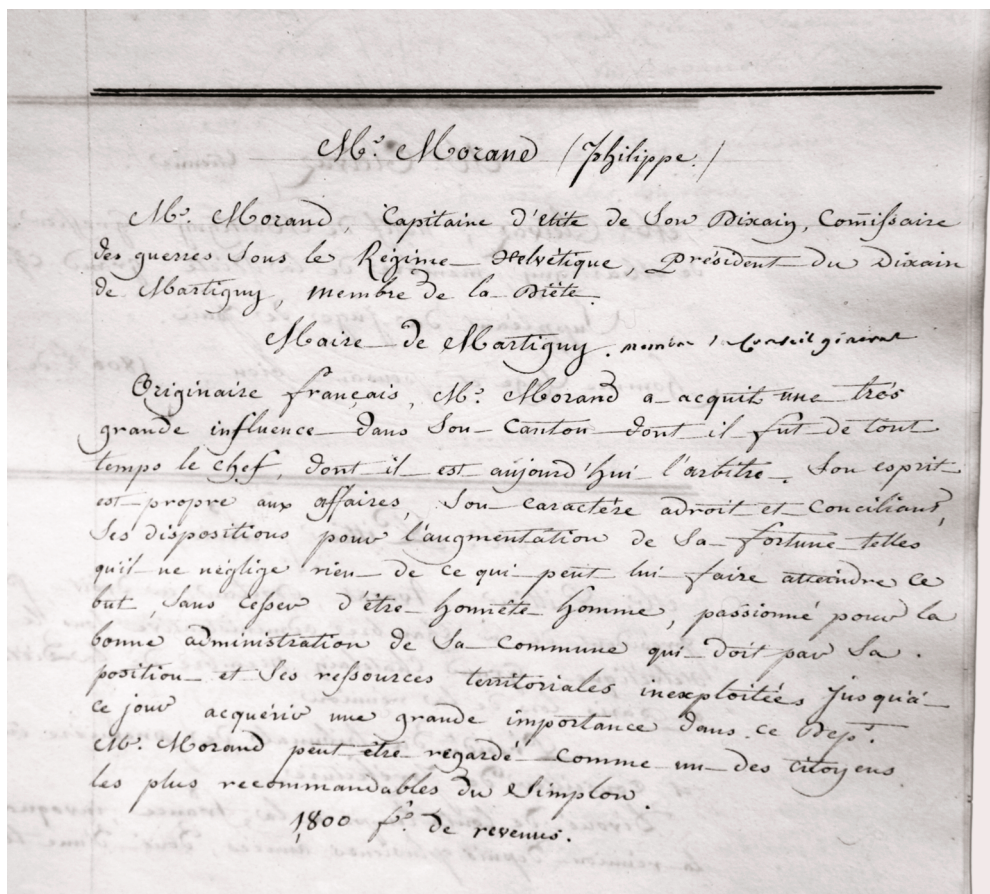 Mr. Morand (Philippe.)
Mr. Morand, Capitaine d'élite de Son Dixain, Commissaire
des guerres Sous le Régime Helvétique, Président du Dixain
de Martigny, membre de la Diète.
Maire de Martigny. Conseil général
Originaire français, Mr. Morand a acquit une très
grande influence dans Son Canton dont il fut de tout
temps le chef, dont il est aujourd'hui l'arbitre. Son esprit
est propre aux affaires, Son caractère adroit et Conciliant,
Ses dispositions pour l'augmentation de Sa fortune telles
qu'il ne néglige rien de ce qui peut lui faire atteindre ce
but, Sans cesser d'être honnête homme, passionné pour la
bonne administration de Sa Commune qui doit par Sa
position et Ses ressources territoriales inexploitées Jusqu'à
ce jour acquérir une grande importance dans ce Dept.
Mr. Morand peut être regardé Comme un des citoyens
les plus recommandables du Simplon.
1800 fs. de revenus.